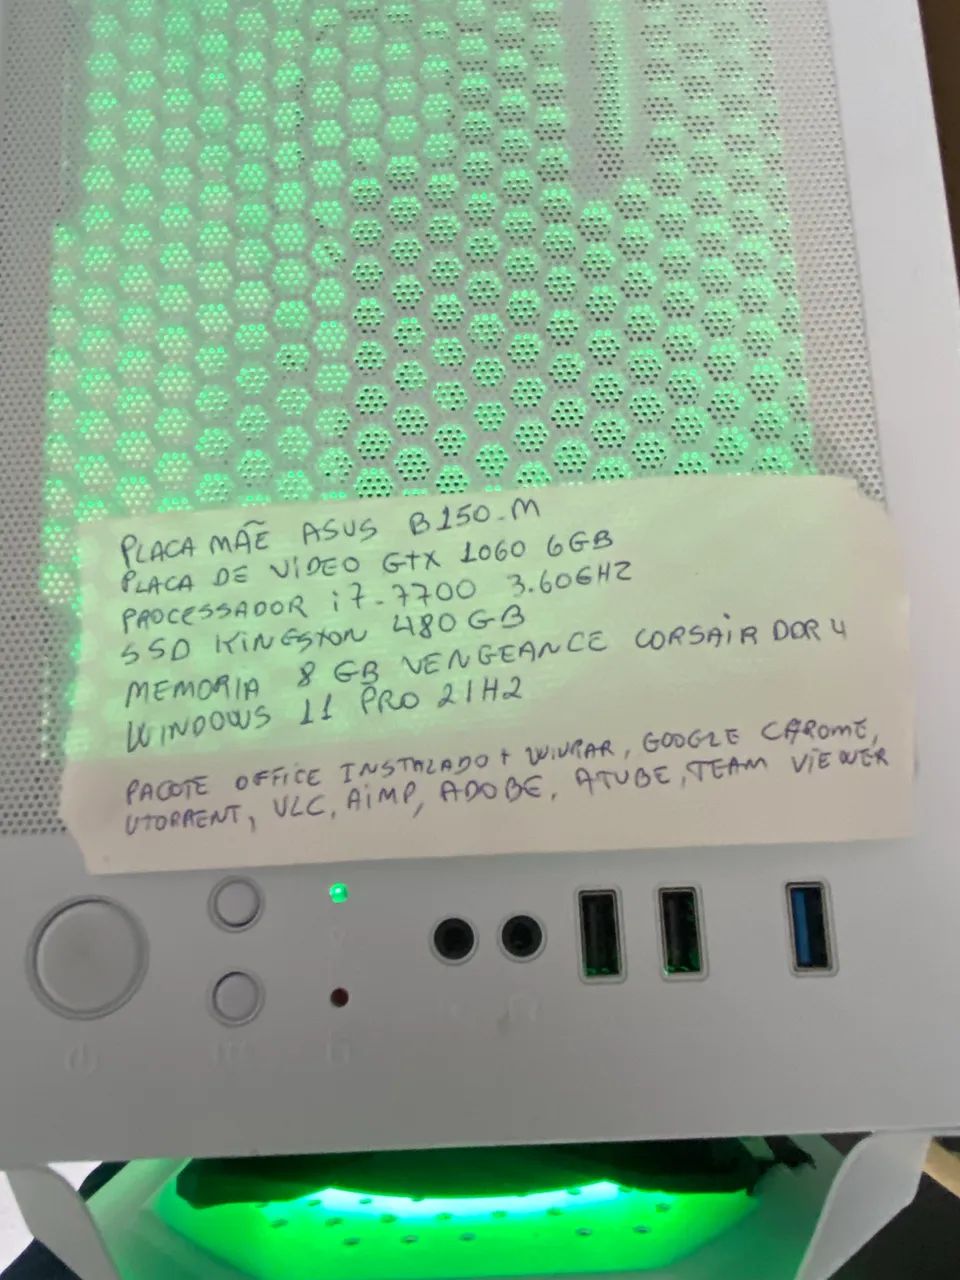 PLACA MÃE ASUS B150-M
PLACA DE VIDEO GTX 1060 6GB
PROCESSADOR i7-7700 3.60GHZ
SSD KINGSTON 480GB
MEMORIA 8 GB VENGEANCE CORSAIR DDR4
WINDOWS 11 PRO 21H2
PACOTE OFFICE INSTALADO + WINRAR, GOOGLE CHROME,
UTORRENT, VLC, AiMP, ADOBE, ATUBE, TEAM VIEWER